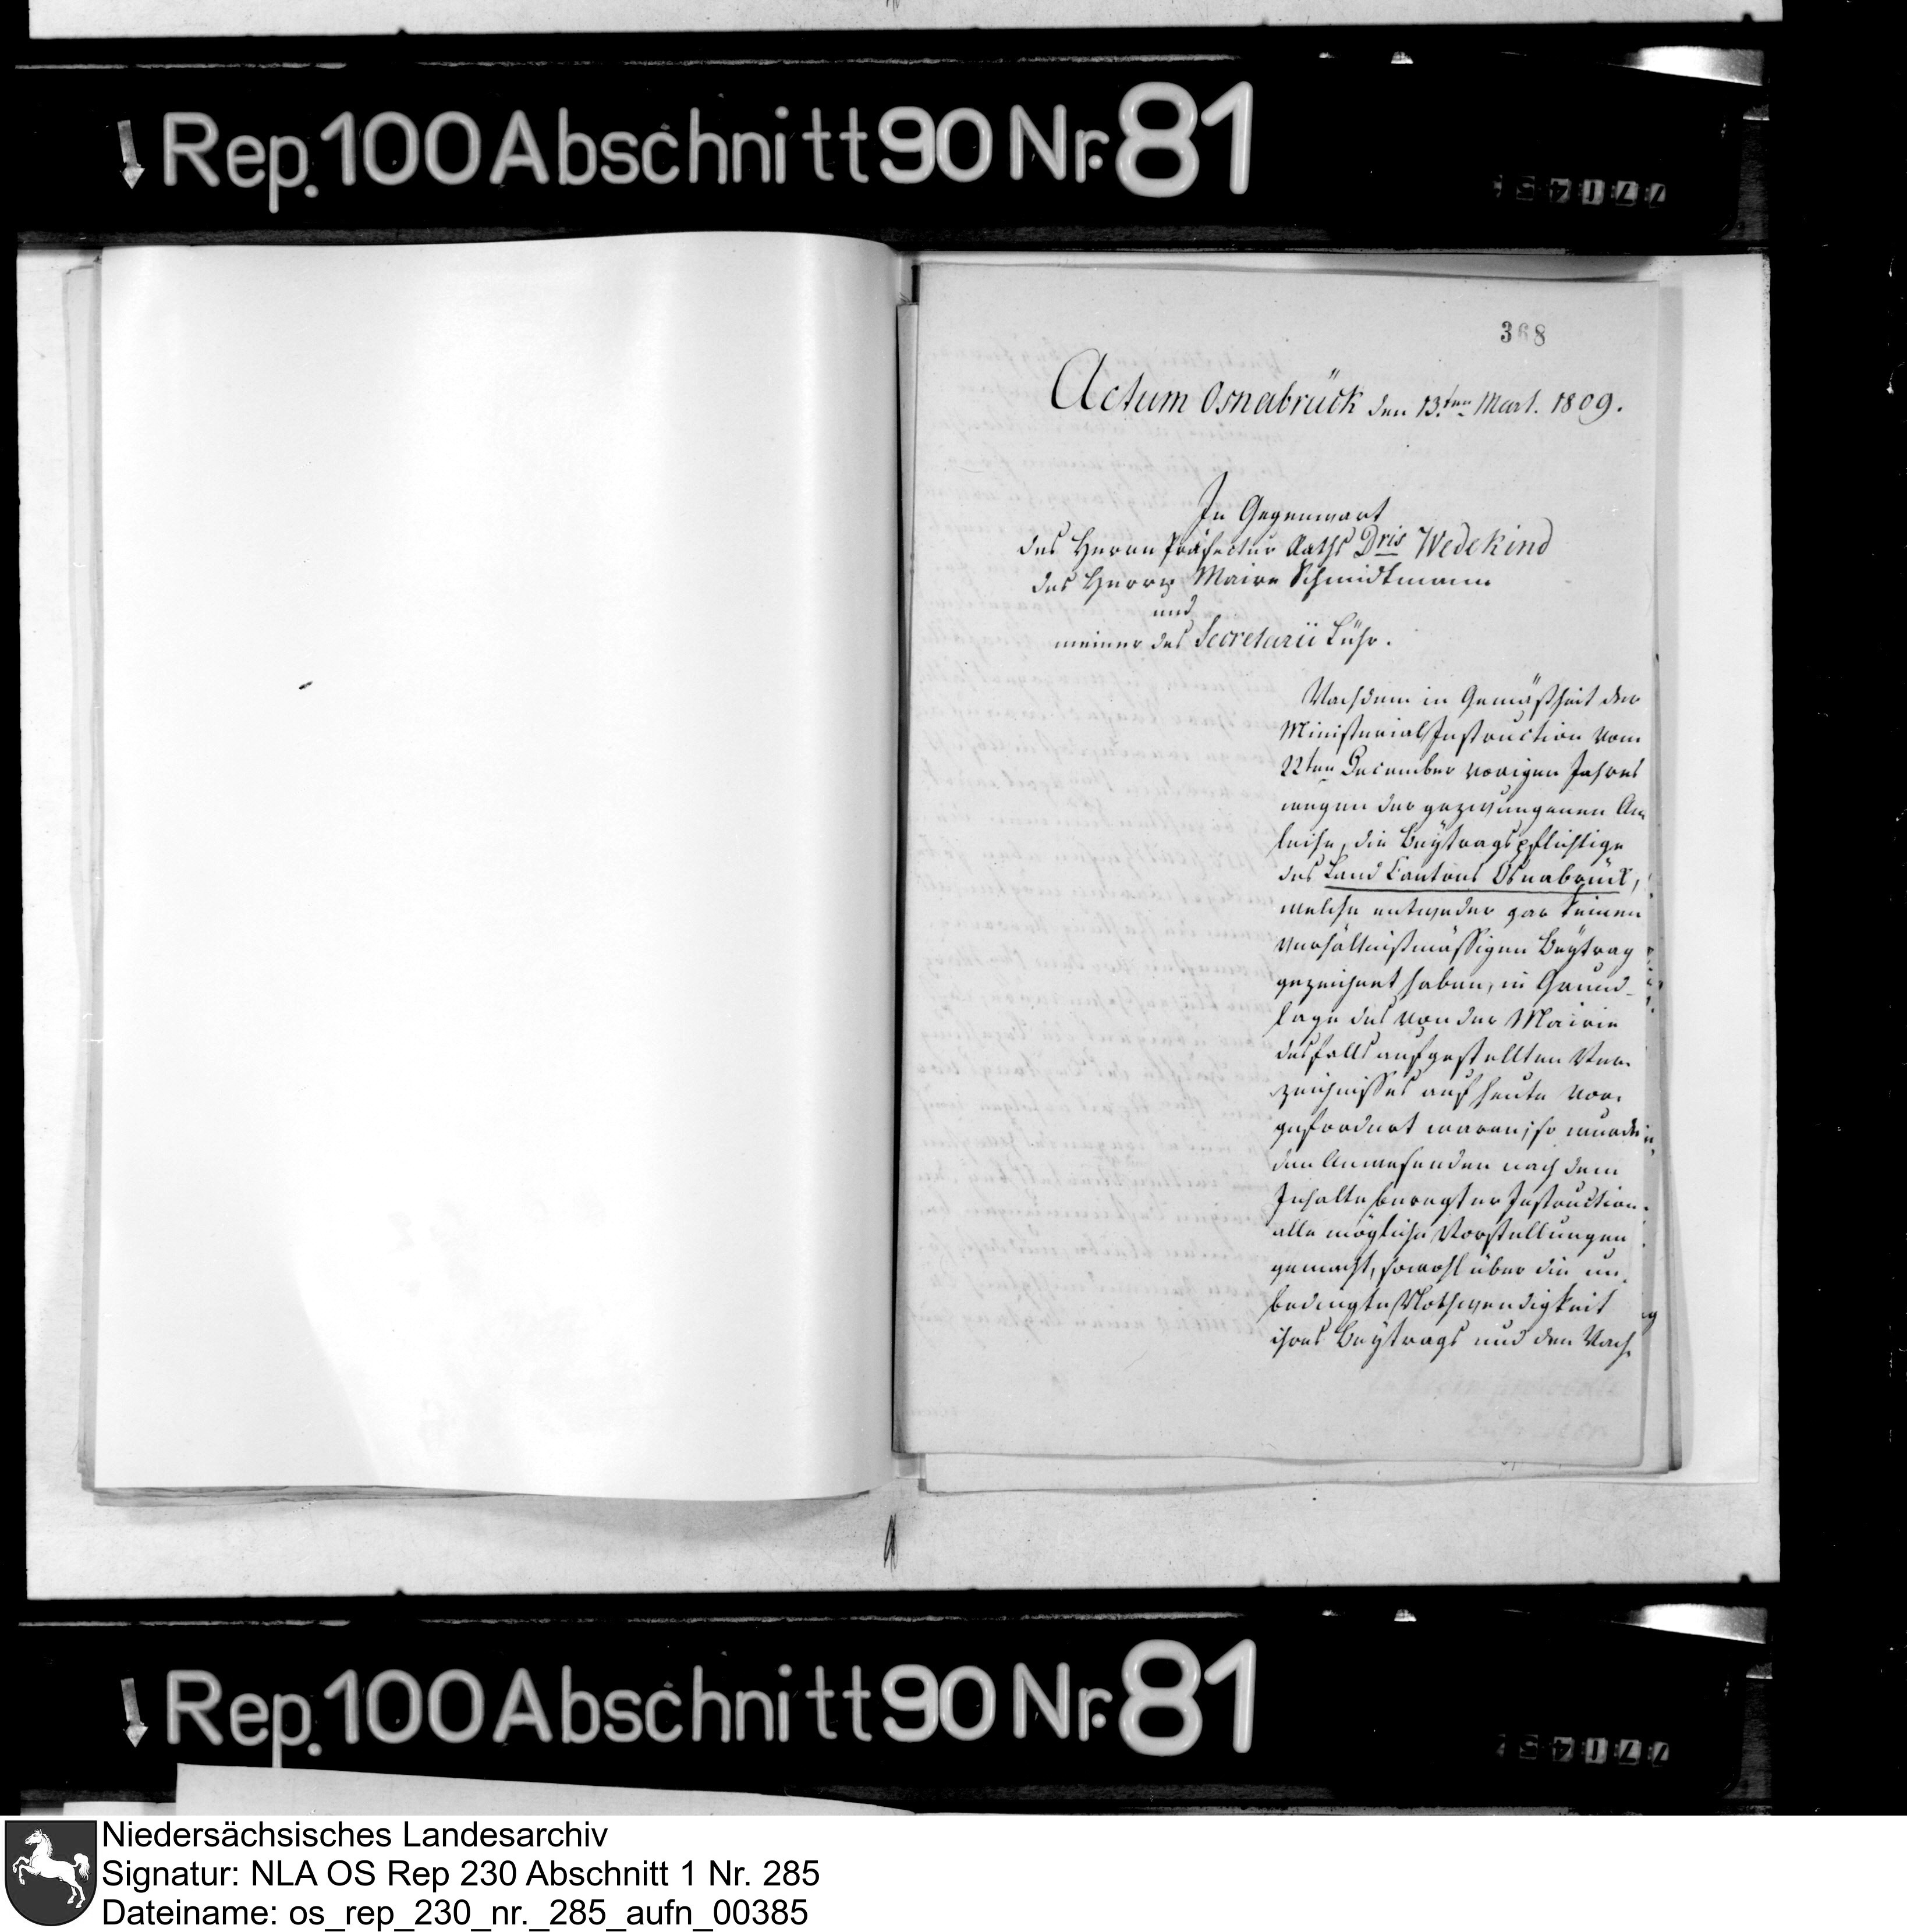 Rep. 100 Abschnitt 90 Nr. 81
368
Actum Osnabrück den 13.ten Mart. 1809.
In Gegenwart
des Herrn Präfectur Raths Dris Wedekind
des Herrn Maire Schmidtmann
und
meiner des Secretarii Lühr.
Nachdem in Gemäßheit der
Ministerial Instruction vom
22ten December vorigen Jahres
wegen der gezwungenen An
leihe, die Beÿtragspflichtige
des Land Cantons Osnabrück,
welche entweder gar keinen
verhältnißmässigen Beÿtrag
gezeichnet haben, in Grund-
lage des von der Mairie
desfalls aufgestellten Ver-
zeichnisses auf heute vor-
gefordert waren; so wurde
den Anwesenden nach dem
Inhalte beregter Instruction
alle mögliche Vorstellungen
gemacht, sowohl über die un-
bedingte Nothwendigkeit
ihres Beÿtrags und den Nach-
Rep. 100 Abschnitt 90 Nr. 81
Niedersächsisches Landesarchiv
Signatur: NLA OS Rep 230 Abschnitt 1 Nr. 285
Dateiname: os_rep_230_nr._285_aufn_00385